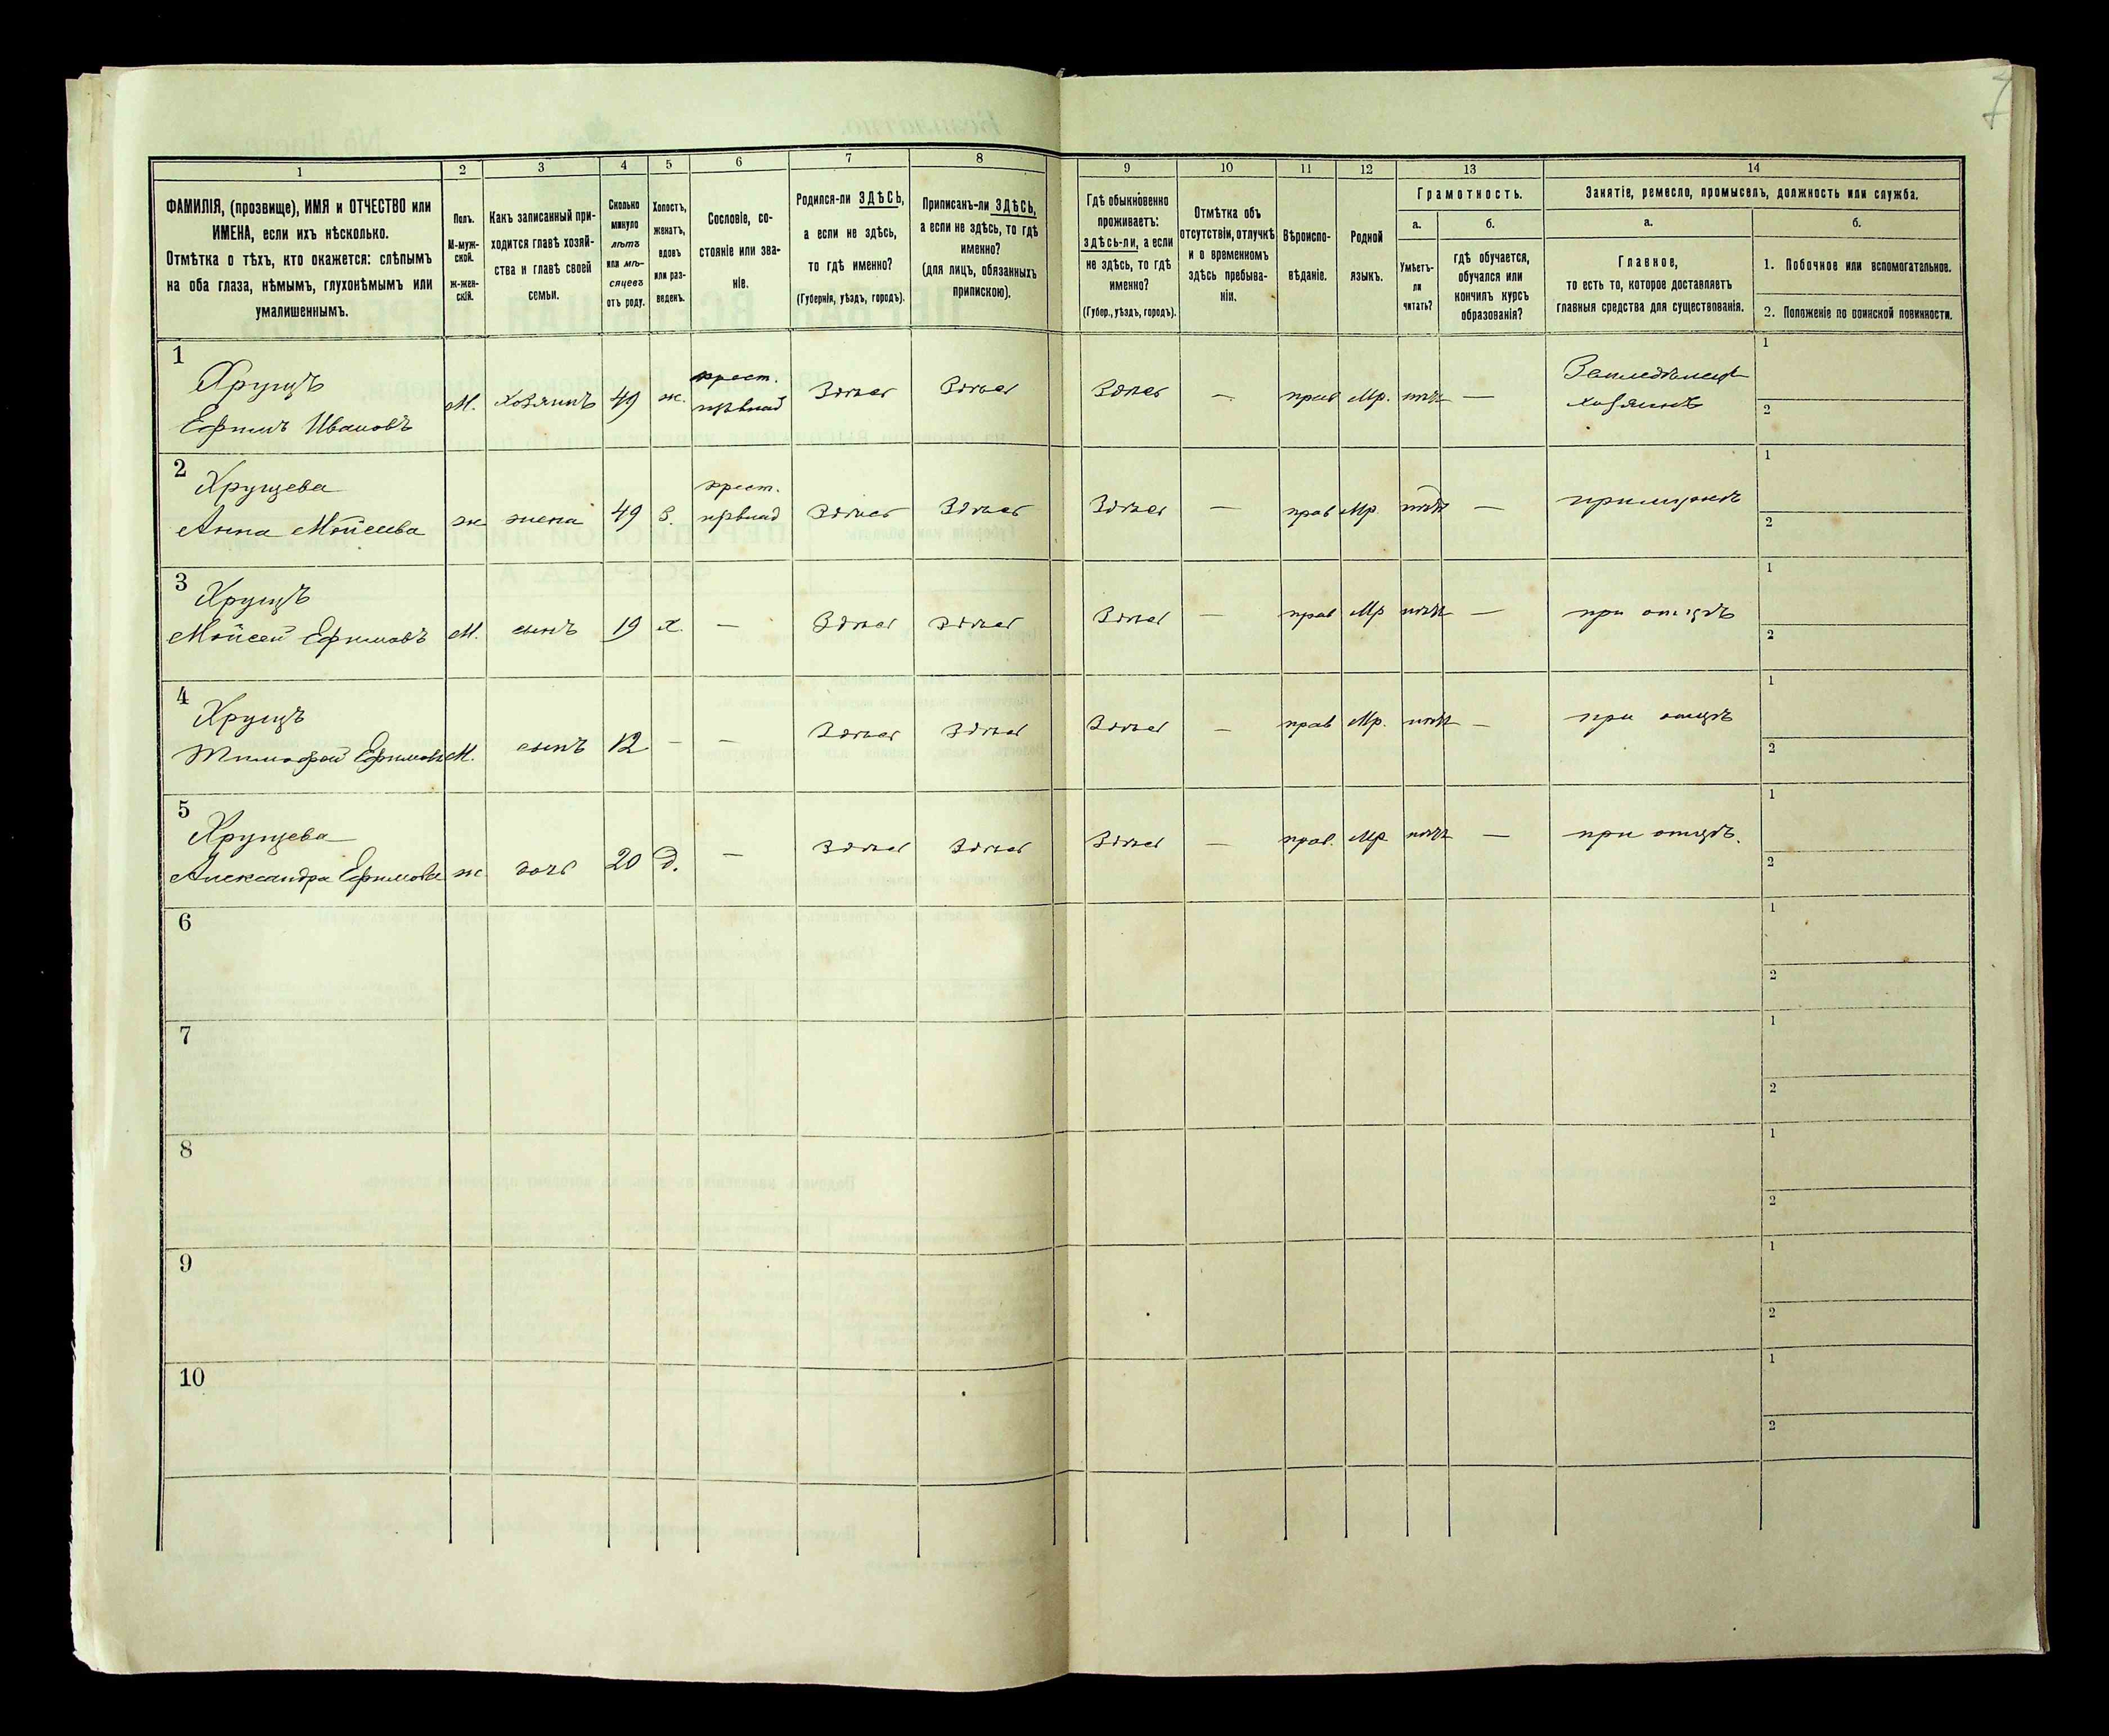 7
1 2 3 4 5 6 7 8 9 10 11 12 13 14
ФАМИЛІЯ, (прозвище), ИМЯ и ОТЧЕСТВО или
ИМЕНА, если ихъ нѣсколько.
Отмѣтка о тѣхъ, кто окажется: слѣпымъ
на оба глаза, нѣмымъ, глухонѣмымъ или
умалишеннымъ.
Полъ.
М-муж-
ской.
Ж-жен-
скій.
Какъ записанный при-
ходится главѣ хозяй-
ства и главѣ своей
семьи.
Сколько
минуло
лѣтъ
или мѣ-
сяцевъ
отъ роду.
Холостъ,
женатъ,
вдовъ
или раз-
веденъ.
Сословіе, со-
стояніе или зва-
ніе.
Родился-ли ЗДѢСЬ,
а если не здѣсь,
то гдѣ именно?
(Губернія, уѣздъ, городъ).
Приписанъ-ли ЗДѢСЬ,
а если не здѣсь, то гдѣ
именно?
(для лицъ, обязанныхъ
припискою).
Гдѣ обыкновенно
проживаетъ:
здѣсь-ли, а если
не здѣсь, то гдѣ
именно?
(Губер., уѣздъ, городъ).
Отмѣтка объ
отсутствіи, отлучкѣ
и о временномъ
здѣсь пребыва-
ніи.
Вѣроиспо-
вѣданіе.
Родной
языкъ.
Грамотность.
а.
Умѣетъ-
ли
читать?
б.
гдѣ обучается,
обучался или
кончилъ курсъ
образованія?
Занятіе, ремесло, промыселъ, должность или служба.
а.
Главное,
то есть то, которое доставляетъ
главныя средства для существованія.
б.
1. Побочное или вспомогательное.
2. Положеніе по воинской повинности.
1
Хрущъ
Ефимъ Ивановъ М. хозяинъ 49 ж. крест. Здѣсь Здѣсь Здѣсь — прав Мр. нѣтъ — Земледѣлецъ
хозяинъ
1
2
2
Хрущева
Анна Мойсеева ж жена 49 З. крест. Здѣсь Здѣсь Здѣсь — прав Мр. нѣтъ —
1
2
3
Хрущъ
Мойсей Ефимовъ М. сынъ 19 х. — Здѣсь Здѣсь Здѣсь — прав Мр нѣтъ — при отцѣ
1
2
4
Хрущъ
Тимофей Ефимовъ М. сынъ 12 — — Здѣсь Здѣсь Здѣсь — прав Мр. нѣтъ — при отцѣ
1
2
5
Хрущева
Александра Ефимова ж дочь 20 д. — Здѣсь Здѣсь Здѣсь — прав. Мр нѣтъ — при отцѣ.
1
2
6
1
2
7
1
2
8
1
2
9
1
2
10
1
2